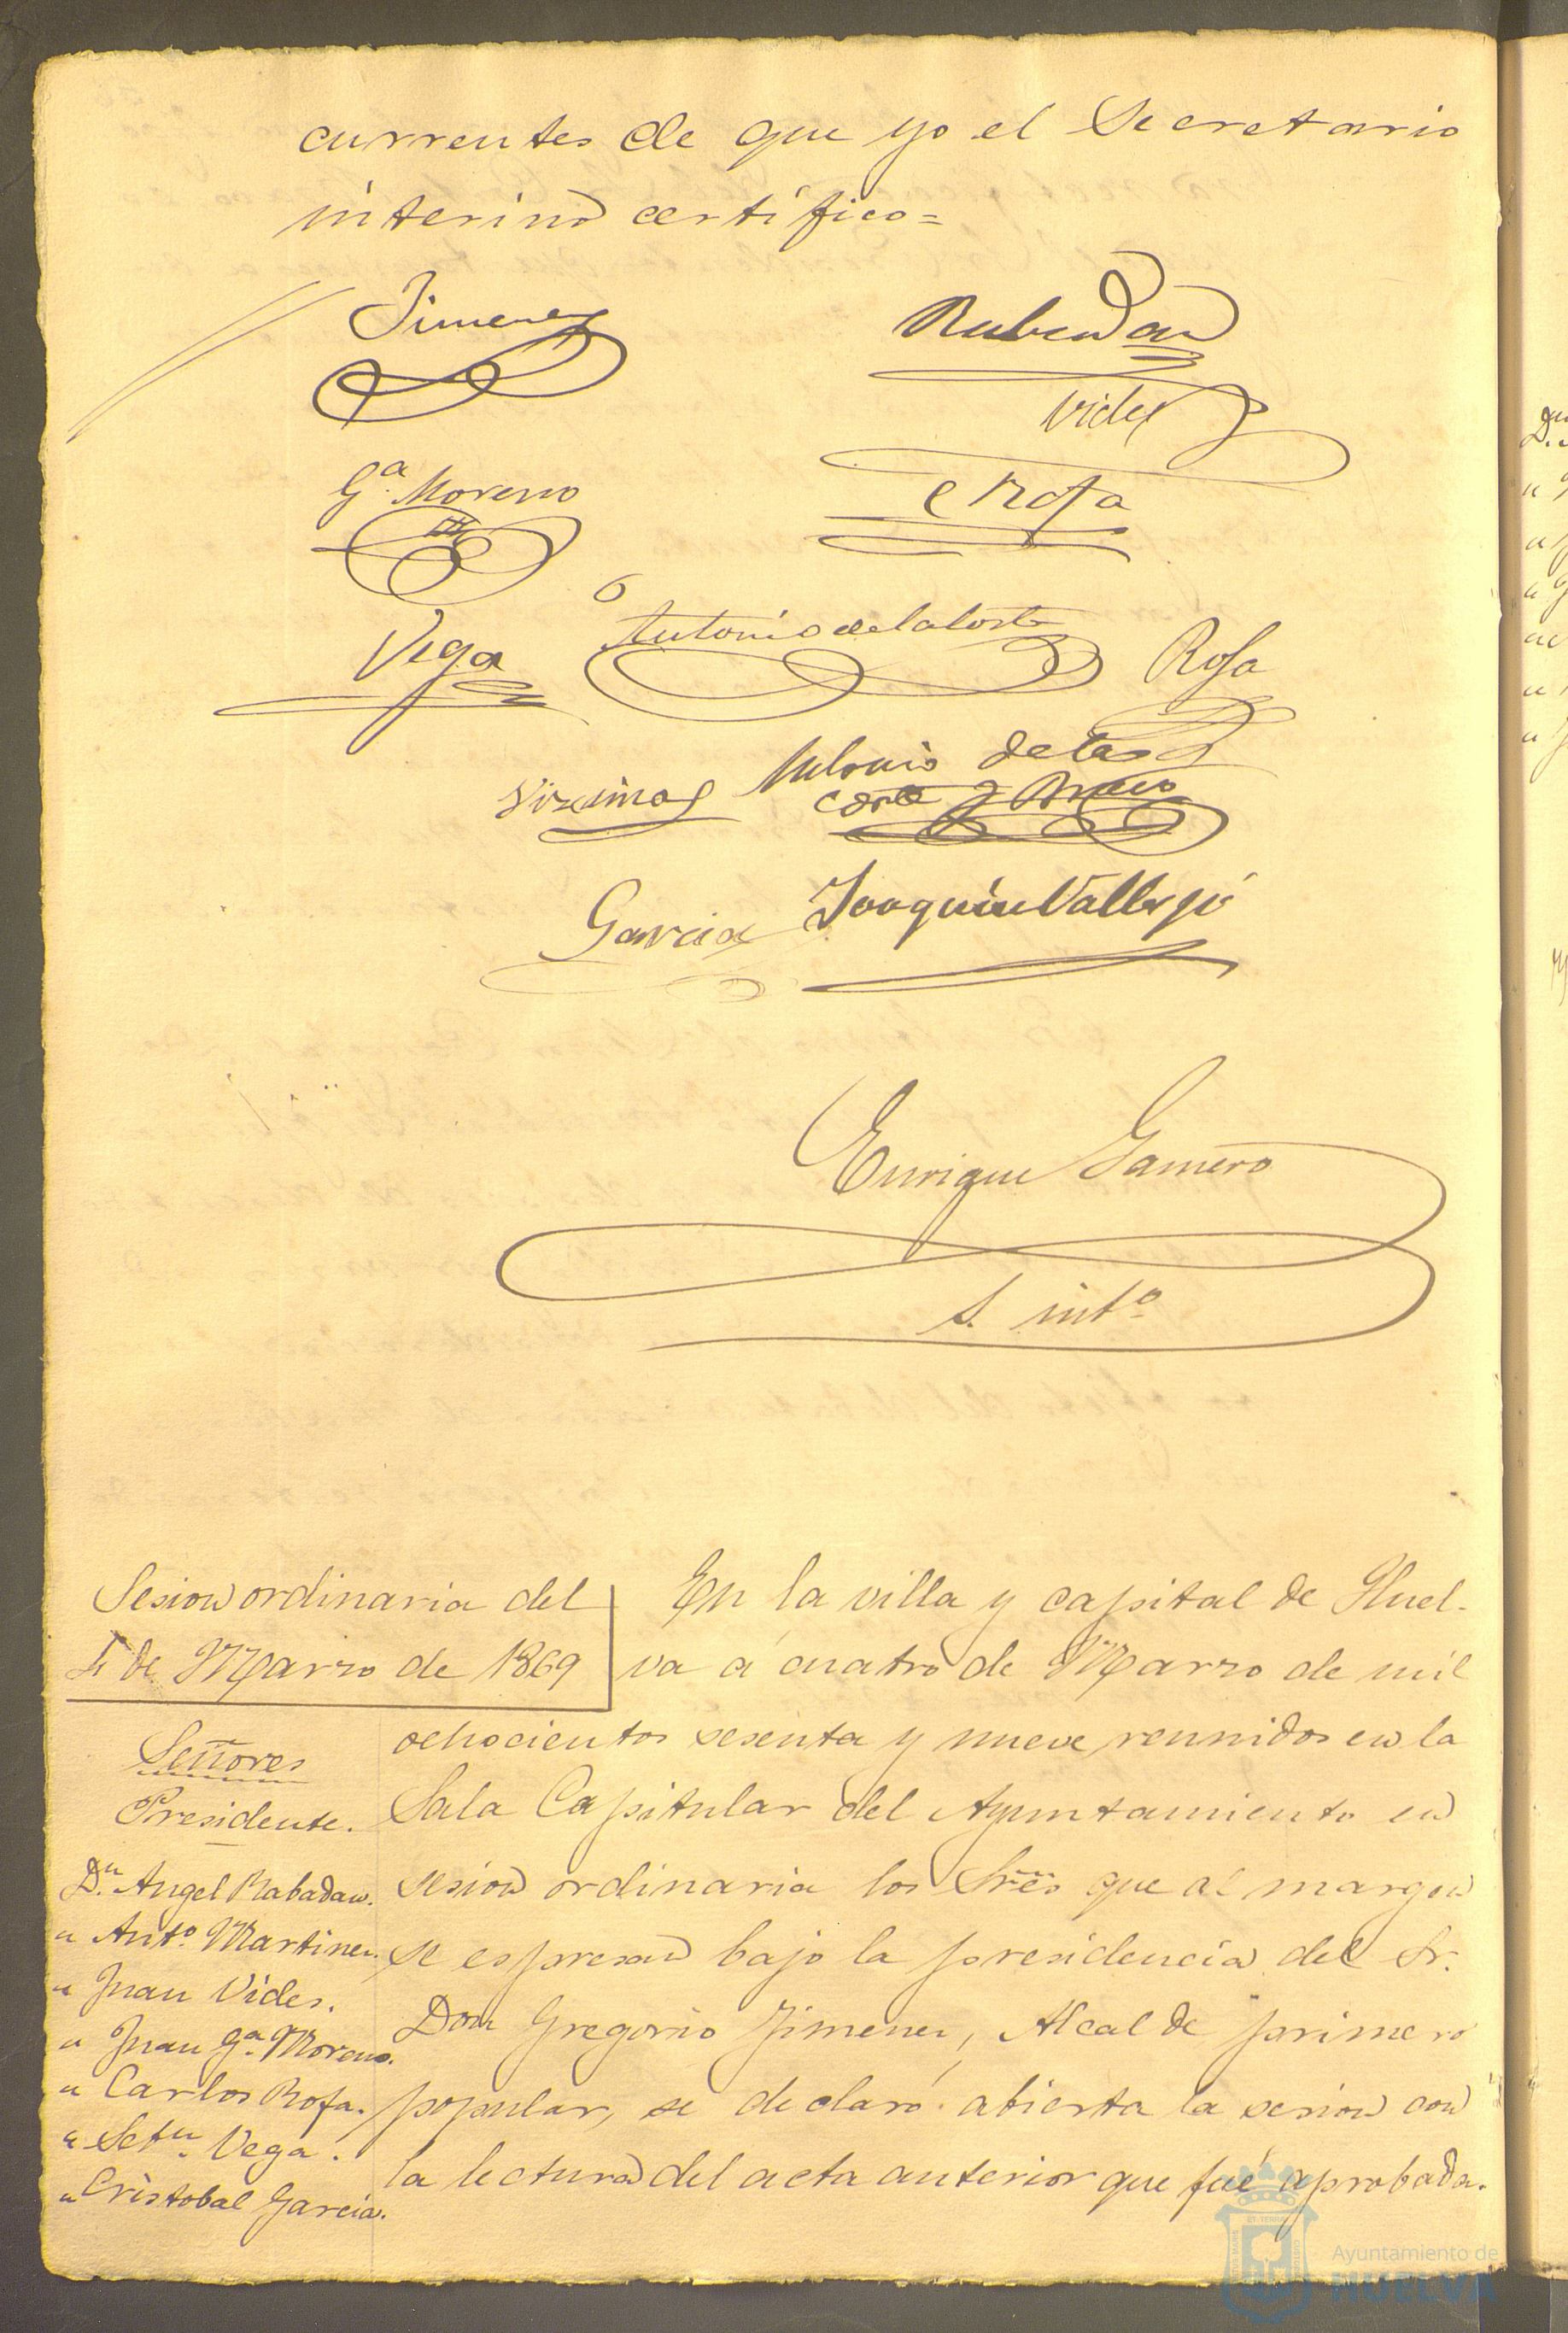 currentes de que yo el Secretario
interino certifico=
Jimenez
Rabadan
Vides
Gª. Moreno
C Rofa
Vega
Antonio de la Corte
Rofa
Antonio de la
Corte y Bravo
Garcia
Joaquin Vallejo
Enrique Gamero
S. intº
Sesion ordinaria del
4 de Marzo de 1869
Señores
Presidente.
D.n Angel Rabadan.
" Antº. Martinez.
" Juan Vides.
" Juan Gª. Moreno.
" Carlos Rofa.
" Setn. Vega.
" Cristobal Garcia.
En la villa y capital de Huel-
va á cuatro de Marzo de mil
ochocientos sesenta y nueve reunidos en la
Sala Capitular del Ayuntamiento en
sesion ordinaria los Sres que al margen
se espresan bajo la presidencia del Sr.
Don Gregorio Jimenez, Alcalde primero
popular, se declaró abierta la sesion con
la lectura del acta anterior que fué aprobada.
Ayuntamiento de
HUELVA